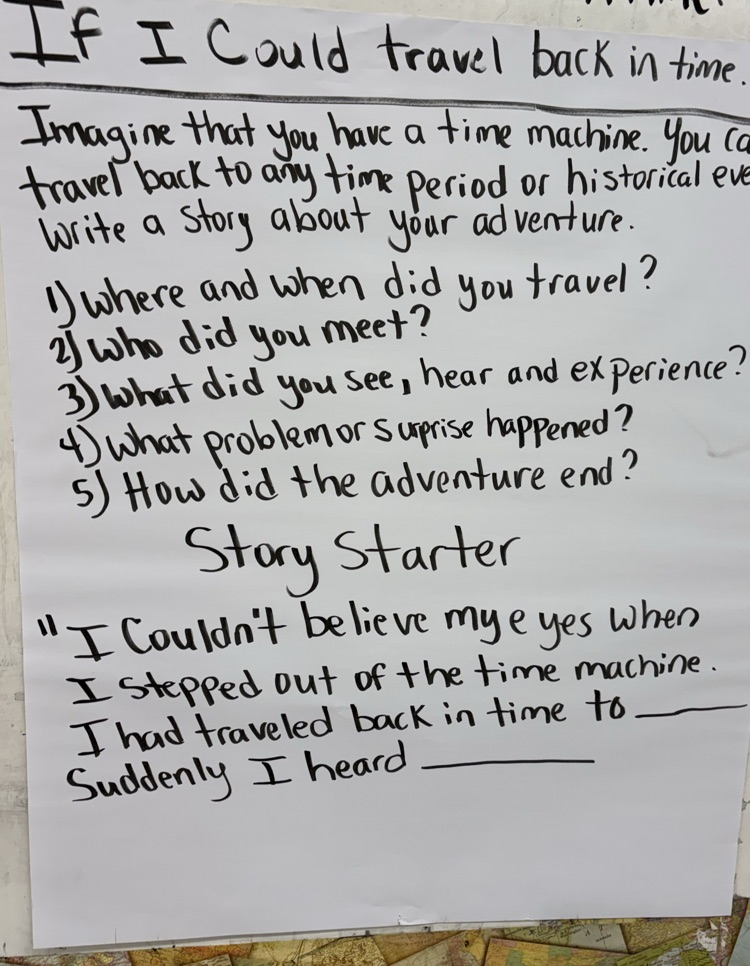 If I Could travel back in time.
Imagine that you have a time machine. You ca
travel back to any time period or historical eve
Write a story about your adventure.
1) Where and when did you travel?
2) Who did you meet?
3) What did you see, hear and experience?
4) What problem or surprise happened?
5) How did the adventure end?
Story Starter
"I Couldn't believe my eyes when
I stepped out of the time machine.
I had traveled back in time to ______
Suddenly I heard ______